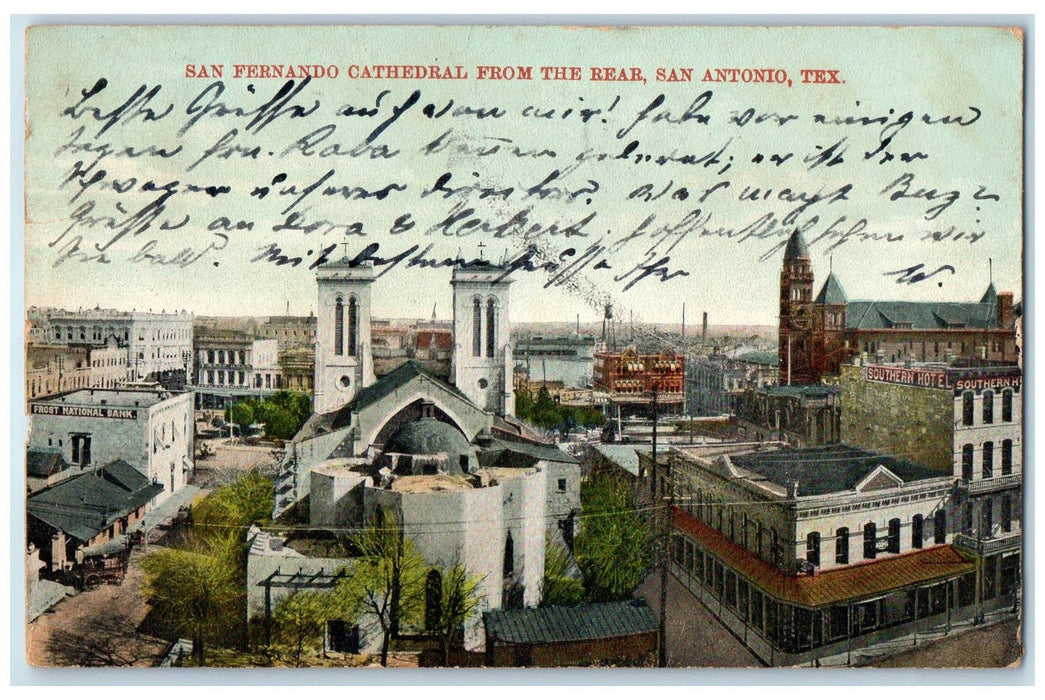 SAN FERNANDO CATHEDRAL FROM THE REAR, SAN ANTONIO, TEX.
Beste Grüsse auch von mir! habe vor einigen
tagen frn. Raba kennen gelernt; er ist der
Schwager unseres directors. Was macht
Grüsse an Dora & Herbert. hoffentlich sehen wir
Sie bald. Mit besten Grüsse Ihr W.
FROST NATIONAL BANK
SOUTHERN HOTEL
SOUTHERN H